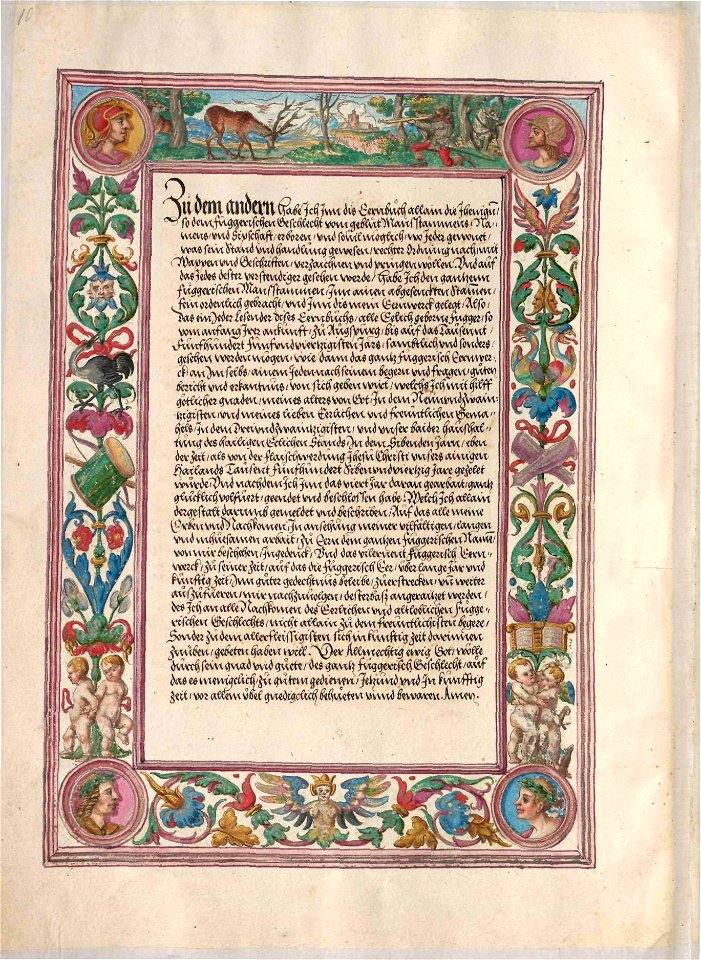 10
Zu dem andern habe Ich Inn dis Eernbuch allain die Ihenigen /
so dem Fuggerischen Geschlecht vom geblüt Mansstammens / Na-
mens / und Sypschaft / erboren / und sovil möglich / wo jeder gewonet /
was sein Stand und handlung gewesen / rechter Ordnung nach / mit
Wappen und Geschriften / verzaichnen und bringen wöllen. Und auf
das Jedes dester verstendiger gesehen werde / habe Ich den gantzen
Fuggerischen Mansstammen / Inn ainen abgesenckten Stamen /
fein ordenlich gebracht / und Inn dis mein Eernwerck gelegt / Also
das ein Jeder Lesender dises Eernbuchs / alle Eelich geborne Fugger / so
vom anfang Irer ankunft / Zu Augspurg / bis auf das Tausennt
Fünfhundert Fünfundviertzigisten Jars / sambtlich und sonders /
gesehen werden mögen / wie dann das gantz Fuggerisch Eernwer-
ck / an Im selbs / ainem Jeden nach seinem begern und fragen / guten
bericht und erkantnus / von sich geben wirt / welchs Ich mit hilff
götlicher gnaden / meines alters von Got / In dem Neinundzwain-
tzigisten / und meines lieben Eerlichen und freuntlichen Gema-
hels / In dem Dreiundzwaintzigisten / und unser baider haushal-
tung des hailigen Eelichen Stands / In dem Sibenden Jarn / eben
der Zeit / als von der flaischwerdung Jhesu Christi unsers ainigen
Hailands Tausent Fünfhundert Sibenundviertzig Jare gezelet
wurde / Und nachdem Ich Inn das viert Jar daran gearbait / gantz
glücklich volfüert / geendet und beschlossen habe / Welch Ich allain
dergestalt darumb gemeldet und beschriben / Auf das alle meine
Erben und Nachkomen / In ansehung meiner vilfältigen / langen
und mühsamen arbait / Zu Eern dem gantzen Fuggerischen Namen
von mir beschehen / Ingedenck / Und das vilernent Fuggerisch Eern-
werck / Zu seiner Zeit / auf das die Fuggerisch Eer / uber lange Jar und
künftig Zeit / Inn guter gedechtnus beleibe / Zuerstrecken / und werter
auszufüeren / mir nachzuvolgen / desterbas angeraitzet werden /
des Ich an alle Nachkomen des Eerlichen und altloblichen Fugge-
rischen Geschlechts / nicht allain Zu dem freuntlichisten begere /
Sonder Zu dem allerfleissigisten sich in künftig Zeit darinnen
Zuüben / gebeten haben will. Der Allmechtig ewig Got / wölle
durch sein gnad und güete / des gantz Fuggerisch Geschlecht / auf
das es meniglich / Zu gutem gedienen / Jetzund und In künfftig
Zeit / vor allem übel gnedigclich behüeten unnd bewaren. Amen.